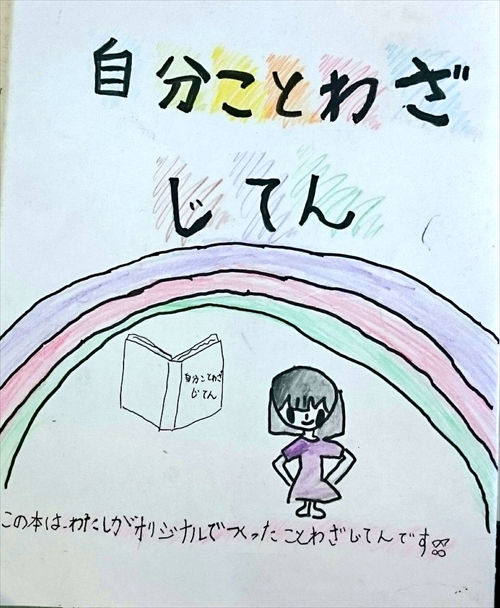 自分ことわざ
じてん
自分ことわざ
じてん
この本は、わたしがオリジナルでつくったことわざじてんです!!